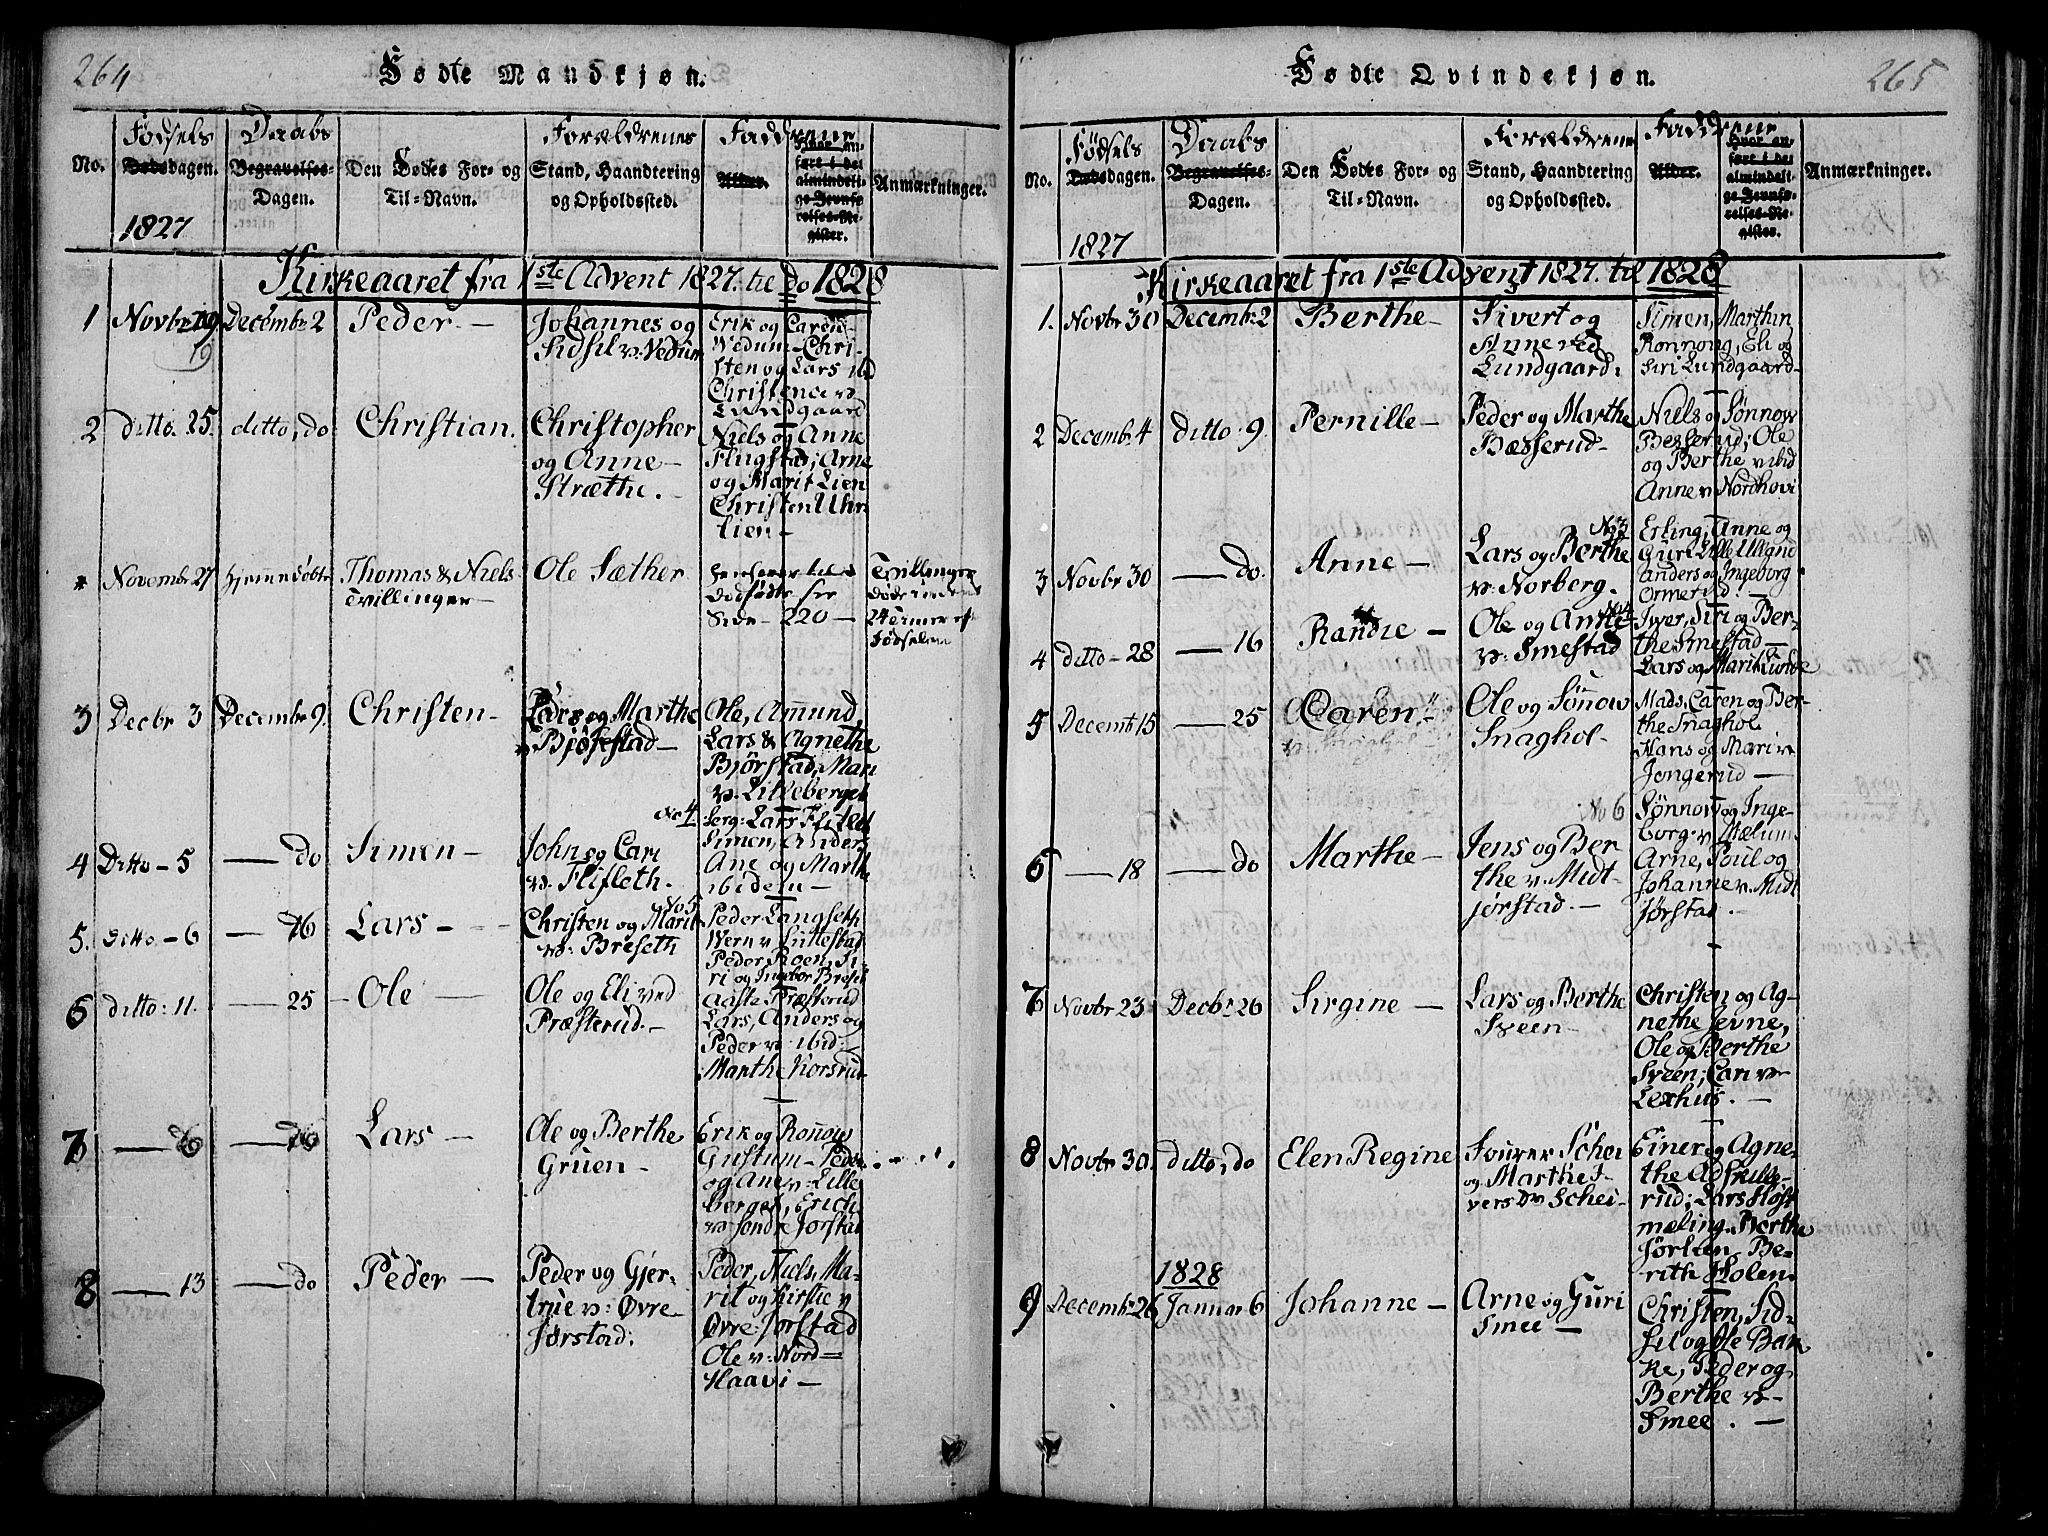 264
Fødte Mandkjøn.
No.
Fødsels
Dødsdagen.
1827
Daabs
Begravelses-
Dagen.
Den Fødtes For- og
Til-Navn.
Forældrenes
Stand, Haandtering
og Opholdssted.
Faddrene
Alder.
Hvor an-
ført i det
almindeli-
ge Jevnfø-
relses-Re-
gister.
Anmærkninger.
Kirkeaaret fra 1ste Advent 1827. til do 1828
1
Novbr 19
19
Decembr 2
Peder. —
Johannes og
Sidsil v: Vedum
Erik og Caren
Vedum — Chri-
sten og Lars ibd
Christence v
Lundgaard
2
Ditto. 25.
ditto, do
Christian.
Christopher
og Anne —
Stræthe.
Niels og Anne
Flugstad; Arne
og Marit Lien
Christen Uhr
lien —
Novembr 27
hjemmedøbte
Thomas & Niels
Tvillinger —
Ole Sæther
henføres til
dødfødte see
Side — 220 —
Tvillinger
døde inden
24 Timer ef
Fødselen
3
Decbr 3
Decembr 9.
Christen —
Lars og Marthe
v Bjørstad —
Ole, Amund,
Lars & Agnethe
Bjørstad, Mari
v. Lilleberget
4
Ditto — 5
— do
Simen —
John og Cari
v. Flifleth.
No 4
Serg: Lars Flifleth
Simen, Anders
Ane og Marthe
ibidem —
5.
Ditto — 6
— 16
Lars — -
Christen og Marit
v: Breseth
No 5
Peder Langseth
Wern v Sillestad
Peder Roen, Si-
ri og Ingebor Breset
6
ditto: 11.
— 25
— Ole —
Ole og Eli ved
Præsterud. —
Aaste Præsterud
Lars, Anders og
Peder v: ibid:
Marthe Korsrud
7
— 26
— 26
Lars —
Ole og Berthe
Gruen —
Erik og Ronnow
Gustum — Peder
og Ane v: Lille
berget, Erich
v søndre Jorstad
8
— 13
— do
Peder —
Peder og Gjer-
true v: Øvre
Jørstad:
Peder, Niels, Ma-
rit og Kirstie v
Øvre Jorstad
Ole v: Nord=
Haavi —
265
Fødte Qvindekjøn.
No.
Fødsels
Dødsdagen.
1827
Daabs
Begravelses-
Dagen.
Den Fødtes For- og
Til-Navn.
Forældrene
Stand, Haandtering
og Opholdssted.
Faddrene
Alder.
Hvor an-
ført i det
almindeli-
ge Jevnfø-
relses-Re-
gister.
Anmærkninger.
Kirkeaaret fra 1ste Advent 1827. til 1828
1.
Novbr 30
Decembr 2
Berthe —
Sivert og
Anne ved
Lundgaard.
Simen, Marthin
Ronnong, Eli og
Siri Lundgaard —
2
Decembr 4
ditto. 9.
Pernille —
Peder og Marthe
Bæsserud —
Niels og Sønnow
Besserud; Ole
og Berthe v ibid
Anne v Nordhovi
3
Novbr 30
— do.
Anne —
Lars og Berthe
v: Norberg.
No 3
Erling, Anne og
Guri Lille Ulland
Anders og Ingeborg
Ormerud —
4
ditto — 28
— 16
Randie —
Ole og Anne
v: Smestad
No 4
Iver, Siri og Ber-
the Smestad —
Lars og Marit Lunde
5
Decembr 15
— 25
Caren
Ole og Sønow
Snaghol —
Mads, Caren og Ber-
the Snaghol
Hans og Mari v
Jongerud —
6
— 18
— do
Marthe —
Jens og Ber
the v. Midt-
jørstad. —
No 6
Sønnow og Inge-
borg v Mælum
Arne, Poul og
Johanne v. Midt
jørstad. —
7
Novbr 23
Decbr 26
Sirgine —
Lars og Berthe
Sveen —
Christen og Ag-
nethe Jevne,
Ole og Berthe
Sveen; Cari v
Lexhus. —
8
Novbr 30.
ditto, do
Elen Regine
Sourer Schei
og Marthe I-
versDr Schei —
Einer og Agne-
the Adskille-
rud; Lars Høst
mæling. Berthe
Jørlien, Be-
rith Holen.
9
Decembr 26
1828
Januar 6
Johanne —
Arne og Guri
Smee —
Christen, Sid-
sel og Ole Bak-
ke, Peder og
Berthe v
Smee. —